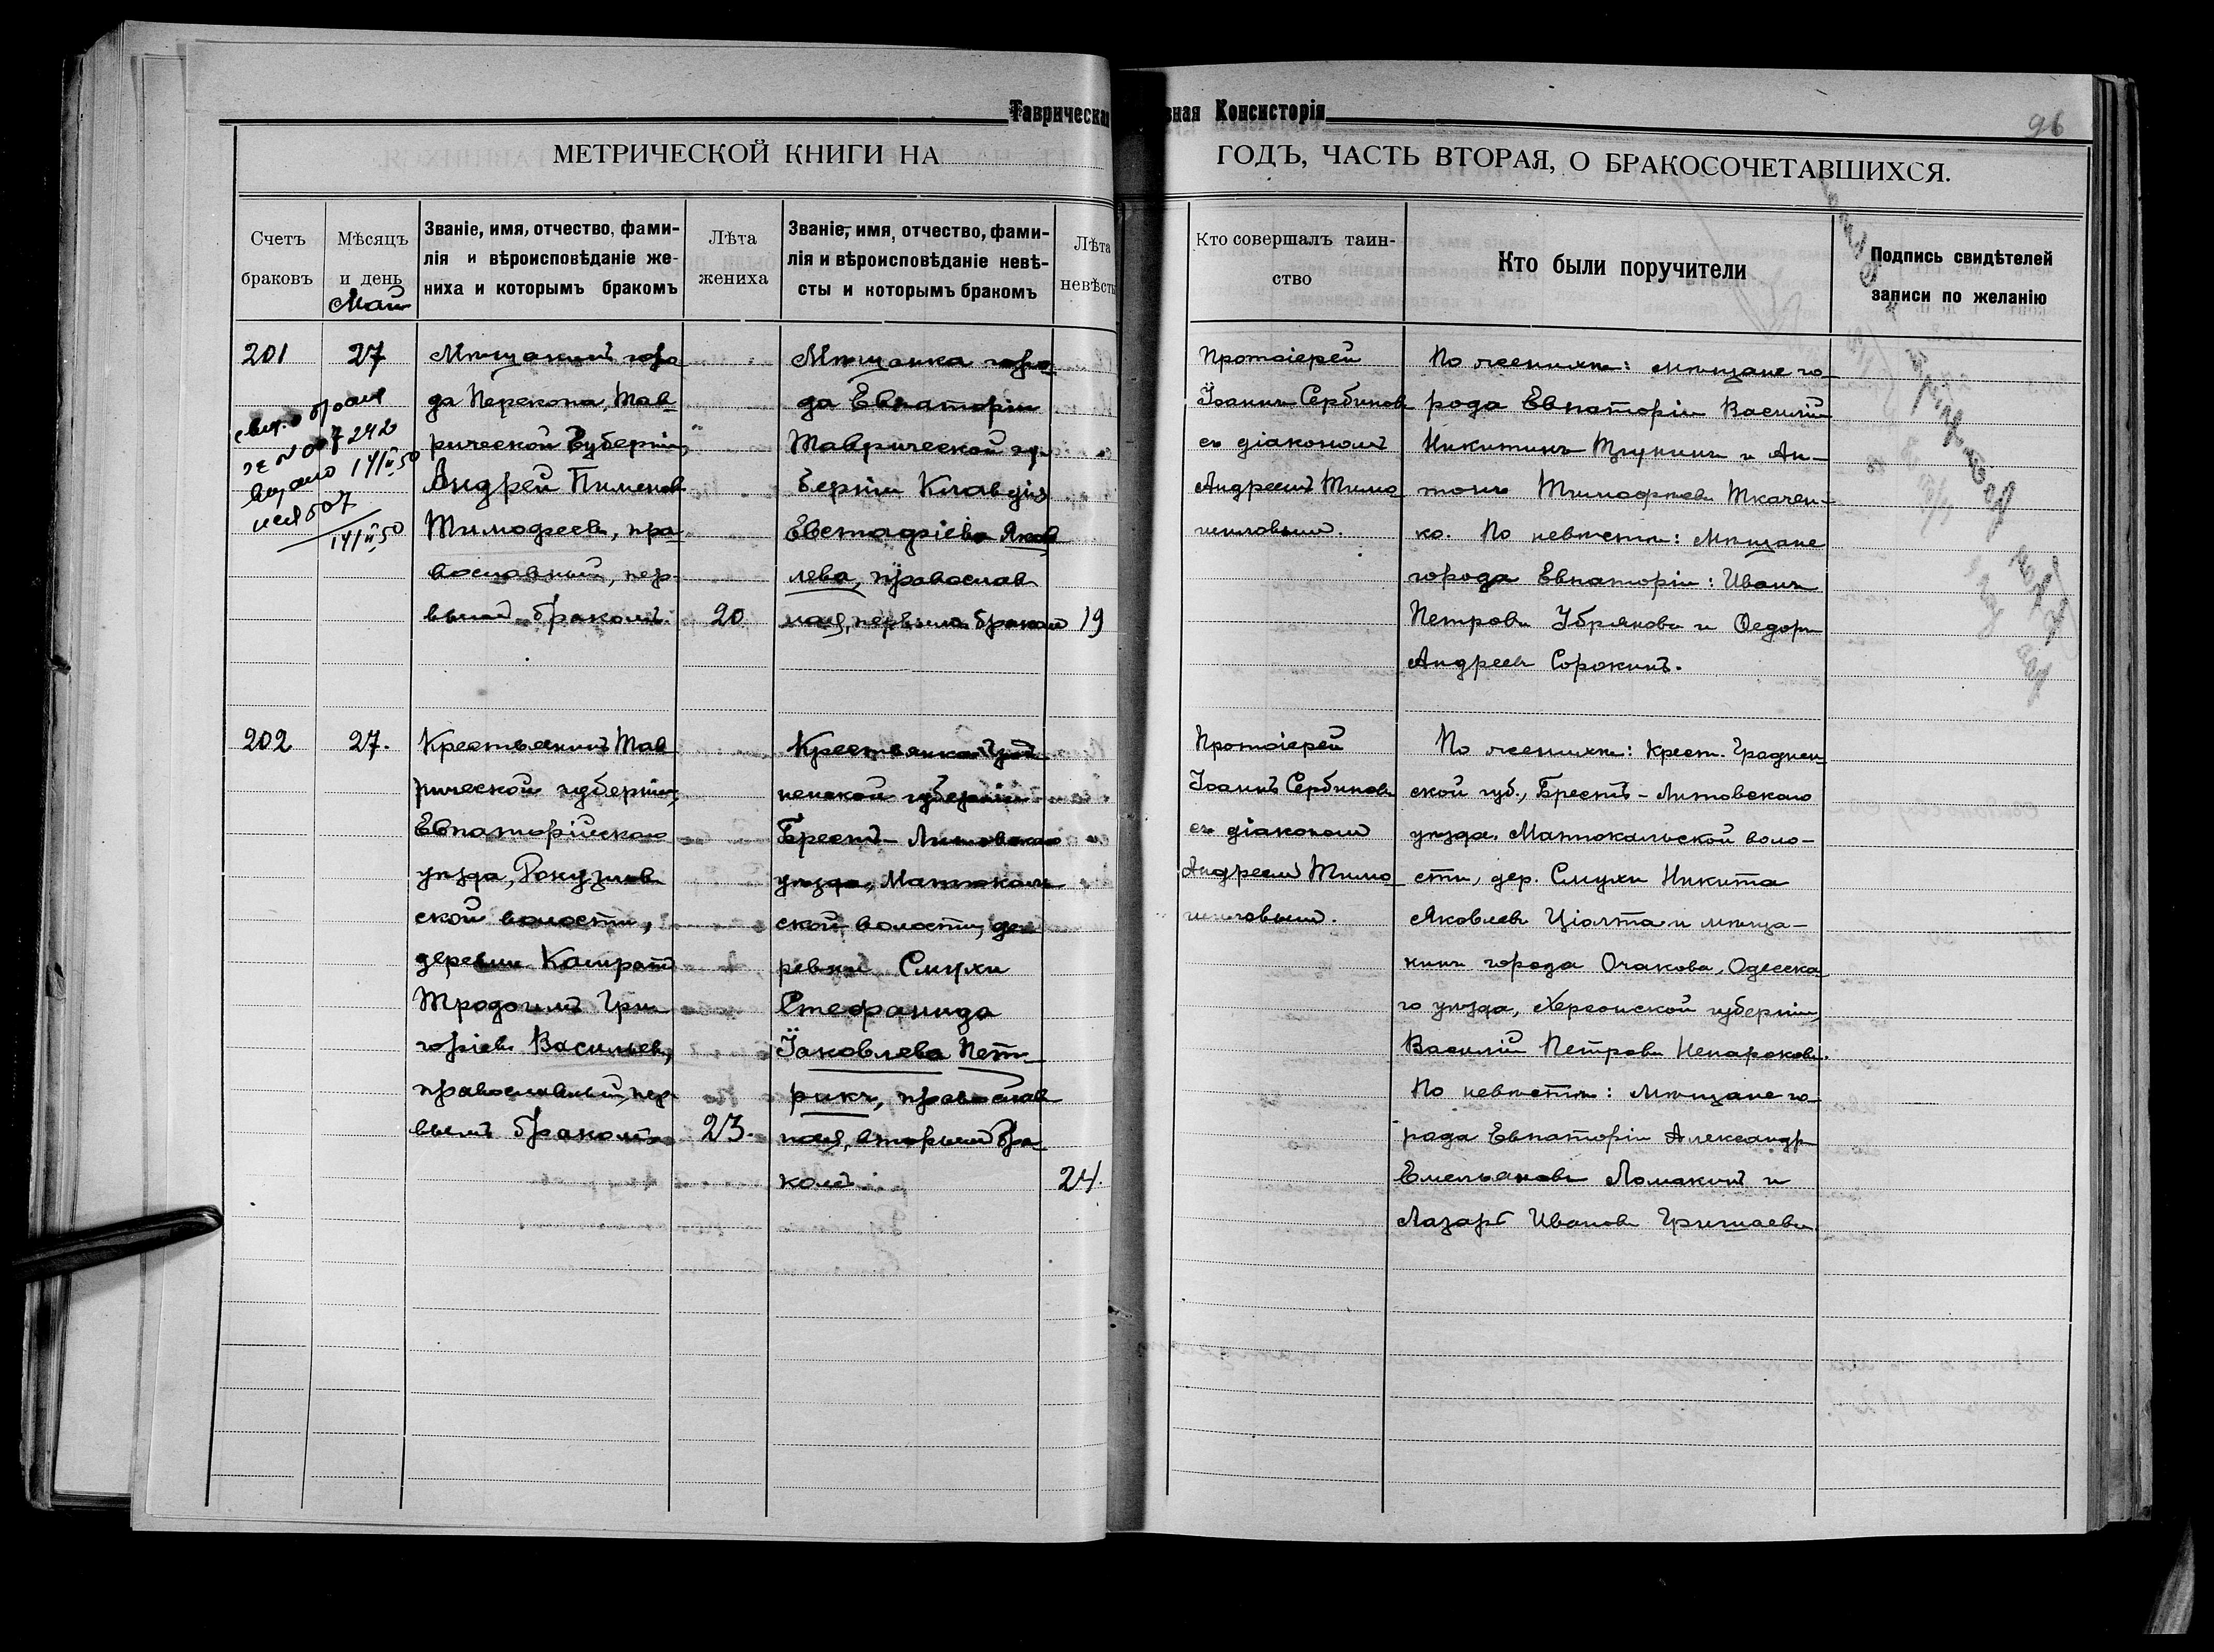 Таврическая
вная Консисторія
96
МЕТРИЧЕСКОЙ КНИГИ НА
ГОДЪ, ЧАСТЬ ВТОРАЯ, О БРАКОСОЧЕТАВШИХСЯ.
Счетъ
браковъ
Мѣсяцъ
и день
Май
Званіе, имя, отчество, фами-
лія и вѣроисповѣданіе же-
ниха и которымъ бракомъ
Лѣта
жениха
Званіе, имя, отчество, фами-
лія и вѣроисповѣданіе невѣ-
сты и которымъ бракомъ
Лѣта
невѣсты
Кто совершалъ таин-
ство
Кто были поручители
Подпись свидѣтелей
записи по желанію
201
27
14/II 50
Мѣщанинъ горо
да Перекопа, Тав
рической Губерніи,
Андрей Пименов
Тимофеевъ, пра
вославный, пер
вымъ бракомъ.
20
Мѣщанка горо
да Евпаторіи
Таврической гу
берніи Клавдія
Евстафіева Яков
лева, православ
ная, первымъ бракомъ
19
Протоіерей
Іоаннъ Сербиновъ
съ діакономъ
Андреемъ Тимо
шиловымъ.
По женихѣ: мѣщане го
рода Евпаторіи Василій
Никитинъ Трунинъ и Ан-
тонъ Тимофѣевъ Ткачен-
ко. По невѣстѣ: Мѣщане
города Евпаторіи: Иванъ
Петровъ Убряковъ и Ѳедоръ
Андреевъ Сорокинъ.
202
27.
Крестьянинъ Тав
рической губерніи,
Евпаторійскаго
уѣзда, Донузлав
ской волости,
деревни Камратъ
Трофимъ Гри
горіевъ Васильевъ,
православный, пер
вымъ бракомъ
23.
Крестьянка Грод
ненской губерніи
Брестъ-Литовскаго
уѣзда, Матюкаль
ской волости, де
ревни Смухи
Стефанида
Іаковлева Пет
рикъ, православ
ная, вторымъ бра
комъ.
24.
Протоіерей
Іоаннъ Сербиновъ
съ діакономъ
Андреемъ Тимо
шиловымъ.
По женихѣ: крест. Гроднен
ской губ., Брестъ-Литовскаго
уѣзда, Матюкальской воло-
сти, дер. Смухи Никита
Яковлевъ Ціолта и мѣща-
нинъ города Очакова, Одесска
го уѣзда, Херсонской губерніи,
Василій Петровъ Ненароковъ.
По невѣстѣ: Мѣщане го
рода Евпаторіи Александръ
Емельяновъ Ломакинъ и
Лазарь Ивановъ Гришаевъ.